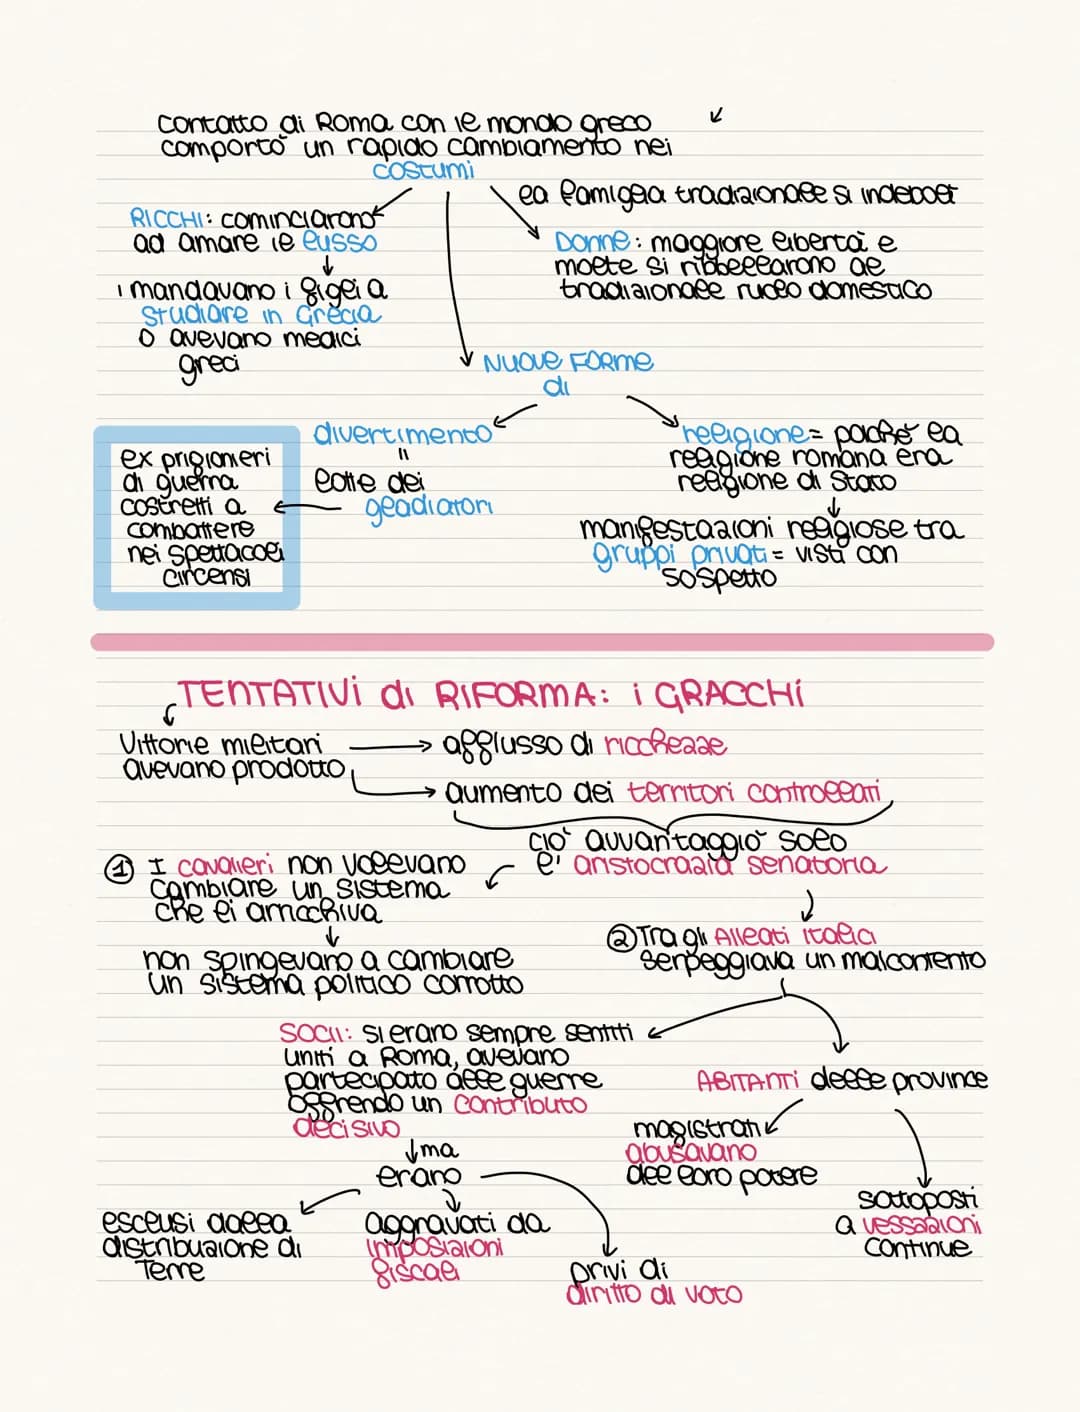 contatto di Roma con le mondo greco
comportò un rapido cambiamento nei
costumi
la famiglia tradizionale si indebolì
RICCHI: cominciarono
ad amare le lusso
Donne: maggiore libertà e
molte si ribbellarono al
tradizionale ruolo domestico
mandavano i figli a
studiare in Grecia
o avevano medici
greci
NUOVE FORME
di
divertimento
"
lotte dei
gladiatori
ex prigionieri
di guerra
costretti a
combattere
nei spettacoli
circensi
religione= poiché la
religione romana era
religione di Stato
manifestazioni religiose tra
gruppi privati = visti con
sospetto
TENTATIVI di RIFORMA: i GRACCHI
Vittorie militari
avevano prodotto
afflusso di ricchezze
aumento dei territori controllati
ciò avvantaggiò solo
l' aristocrazia senatoria
① I cavalieri non volevano
cambiare un sistema
che li arricchiva
non spingevano a cambiare
un sistema politico corrotto
② Tra gli Alleati italici
serpeggiava un malcontento
SOCII: si erano sempre sentiti
uniti a Roma, avevano
partecipato alle guerre
offrendo un contributo
decisivo
ma
erano
esclusi dalla
distribuzione di
Terre
aggravati da
imposizioni
fiscali
privi di
diritto di voto
ABITANTI delle province
magistrati
abusavano
del loro potere
sottoposti
a vessazioni
continue